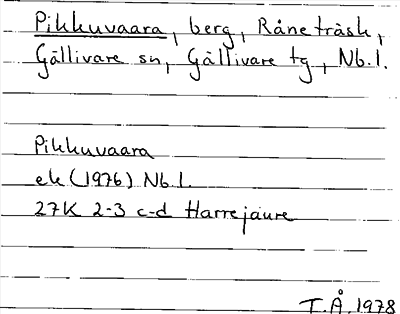 Pikkuvaara, berg, Råneträsk,
Gällivare sn, Gällivare tg, Nb.l.
Pikkuvaara
ek (1976) Nb.l.
27K 2-3 c-d Harrejaure
T.Å. 1978